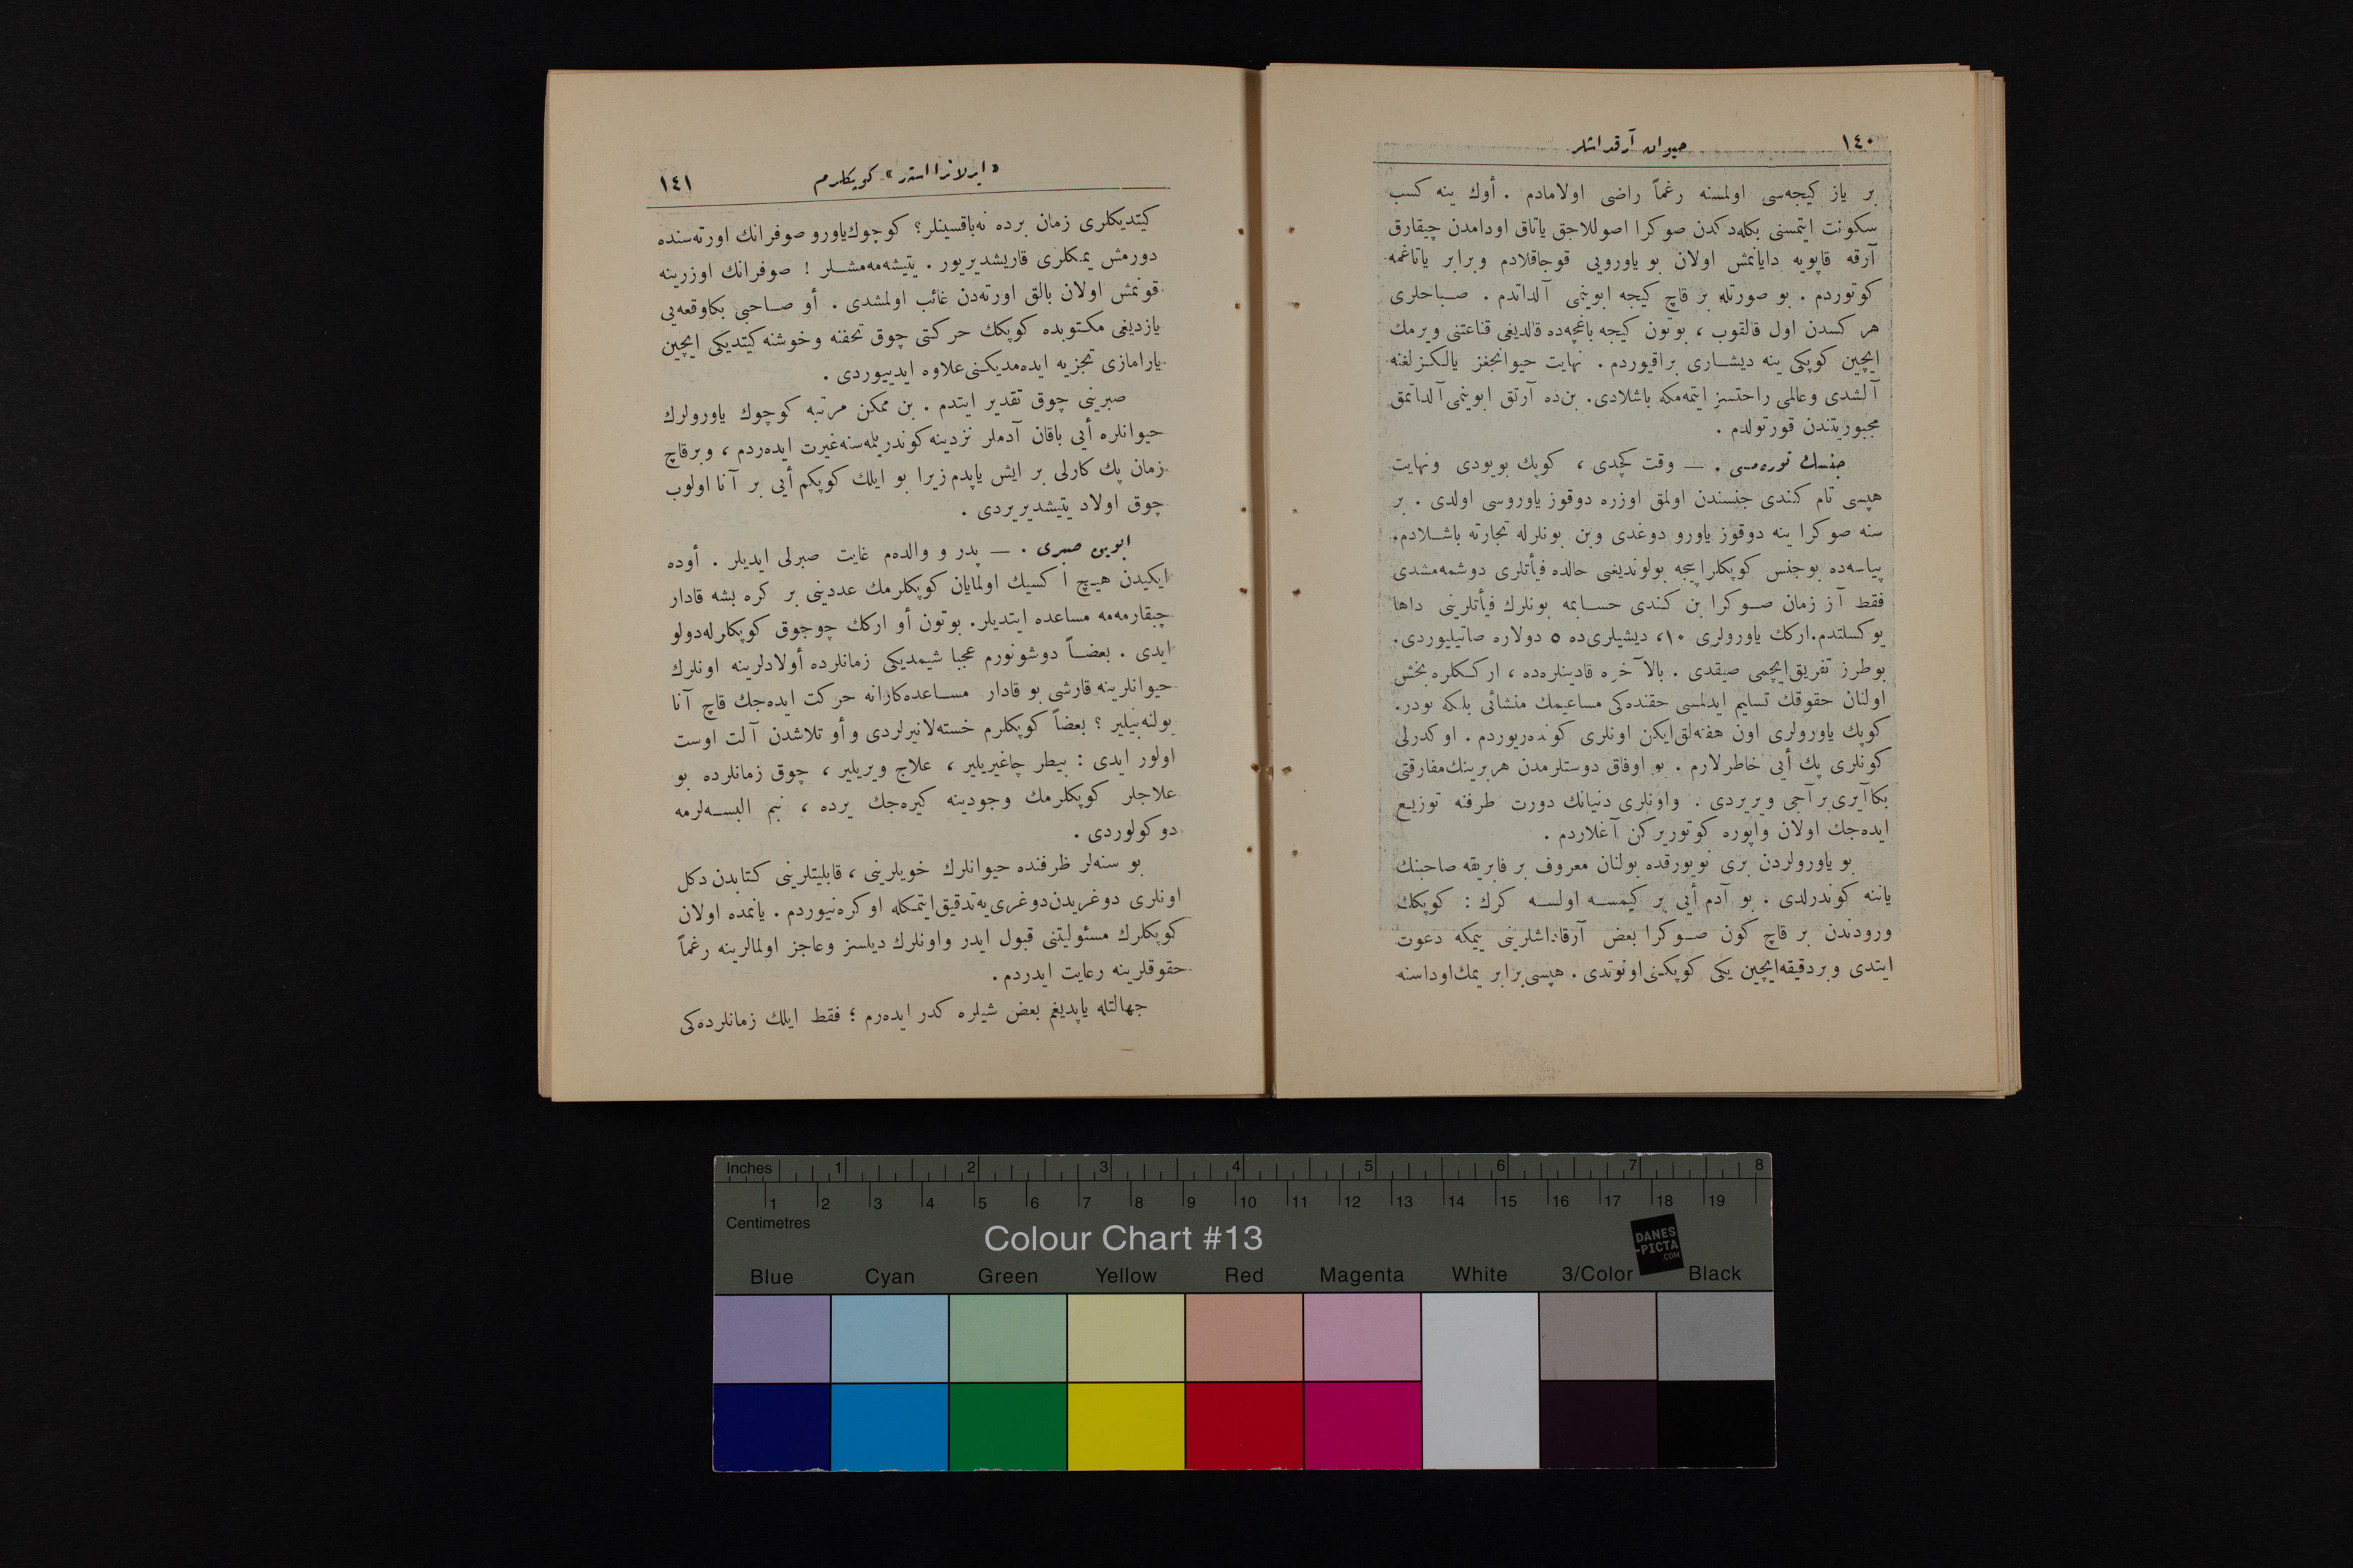 ١٤٠
حيوان آرقداشلر
بر ياز كيجه‌سى اولمسنه رغماً راضى اولامادم . أوك ينه كسب
سكونت ايتمسنى بكله‌دكدن صوكرا اصوللاجق ياتاق اودامدن چيقارق
آرقه قاپويه دايانمش اولان بو ياورويى قوجاقلادم وبرابر ياتاغمه
كوتوردم . بو صورتله بر قاچ كيجه ابوينمى آلداتدم . صباحلرى
هر كسدن اول قالقوب ، بوتون كيجه باغچه‌ده قالديغى قناعتنى ويرمك
ايچين كوپكى ينه ديشارى براقيوردم . نهايت حيوانجغز يالكزلغنه
آلشدى وعالمى راحتسز ايتمه‌مكه باشلادى. بن‌ده آرتق ابوينمى آلداتمق
مجبوريتندن قورتولدم .
جنسك توره‌مسى . — وقت كچدى ، كوپك بويودى ونهايت
هپسى تام كندى جنسندن اولمق اوزره دوقوز ياوروسى اولدى . بر
سنه صوكرا ينه دوقوز ياورو دوغدى وبن بونلرله تجارته باشلادم.
پياسه‌ده بوجنس كوپكلر ايجه بولونديغى حالده فيأتلرى دوشمه‌مشدى
فقط آز زمان صوكرا بن كندى حسابمه بونلرك فيأتلرينى داها
يوكسلتدم.اركك ياورولرى ١٠، ديشيلرى‌ده ٥ دولاره صاتيليوردى.
بوطرز تفريق ايچمى صيقدى . بالآخره قادينلره‌ده ، ارككلره بخش
اولنان حقوقك تسليم ايدلمسى حقنده‌كى مساعيمك منشائى بلكه بودر.
كوپك ياورولرى اون هفته‌لق‌ايكن اونلرى كونده‌ريوردم . او كدرلى
كونلرى پك أيى خاطرلارم . بو اوفاق دوستلرمدن هربرينك‌مفارقتى
بكا‌آيرى‌بر آجى ويريردى . واونلرى دنيانك دورت طرفنه توزيع
ايده‌جك اولان واپوره كوتوريركن آغلاردم .
بو ياورولردن برى نويورقده بولنان معروف بر فابريقه صاحبنك
ياننه كوندرلدى . بو آدم أيى بر كيمسه اولسه كرك : كوپكك
ورودندن بر قاچ كون صوكرا بعض آرقاداشلرينى يمكه دعوت
ايتدى وبردقيقه‌ايچين يكى كوپكنى اونوتدى . هپسى‌برابر يمك‌اوداسنه
كوپكلرم
١٤١
كيتديكلرى زمان برده نه‌باقسينلر؟ كوچوك‌ياورو صوفرانك اورته‌سنده
دورمش يمكلرى قاريشديريور . يتيشه‌مه‌مشلر ! صوفرانك اوزرينه
قونمش اولان بالق اورته‌دن غائب اولمشدى . أو صاحبى بكاوقعه‌يى
يازديغى مكتوبده كوپكك حركتى چوق تحفنه وخوشنه كيتديكى ايچين
يارامازى تجزيه ايده‌مديكنى علاوه ايدييوردى .
صبرينى چوق تقدير ايتدم . بن ممكن مرتبه كوچوك ياورولرك
حيوانلره أيى باقان آدملر نزدينه كوندريلمه‌سنه غيرت ايده‌ردم ، وبرقاچ
زمان پك كارلى بر ايش ياپدم زيرا بو ايلك كوپكم أيى بر آنا اولوب
چوق اولاد يتيشديريردى .
ابوين صبرى . — پدر و والده‌م غايت صبرلى ايديلر . أوده
ايكيدن هيچ اكسيك اولمايان كوپكلرمك عددينى بر كره بشه قادار
چيقارمه‌مه مساعده ايتديلر. بوتون أو اركك چوجوق كوپكلرله‌دولو
ايدى . بعضاً دوشونورم عجبا شيمديكى زمانلرده أولادلرينه اونلرك
حيوانلرينه قارشى بو قادار مساعده‌كارانه حركت ايده‌جك قاچ آنا
بولنه‌بيلير ؟ بعضاً كوپكلرم خسته‌لانيرلردى و أو تلاشدن آلت اوست
اولور ايدى : بيطر چاغيريلير ، علاج ويريلير ، چوق زمانلرده بو
علاجلر كوپكلرمك وجودينه كيره‌جك يرده ، بنم البسه‌لرمه
دوكولوردى .
بو سنه‌لر ظرفنده حيوانلرك خويلرينى ، قابليتلرينى كتابدن دكل
اونلرى دوغريدن‌دوغرى‌يه‌تدقيق‌ايتمكله اوكره‌نيوردم . يانمده اولان
كوپكلرك مسئوليتنى قبول ايدر واونلرك ديلسز وعاجز اولمالرينه رغماً
حقوقلرينه رعايت ايدردم .
جهالتله ياپديغم بعض شيلره كدر ايده‌رم ؛ فقط ايلك زمانلرده‌كى
Inches 1 2 3 4 5 6 7 8
1 2 3 4 5 6 7 8 9 10 11 12 13 14 15 16 17 18 19
Centimetres
Colour Chart #13
DANES
-PICTA
.COM
Blue Cyan Green Yellow Red Magenta White 3/Color Black